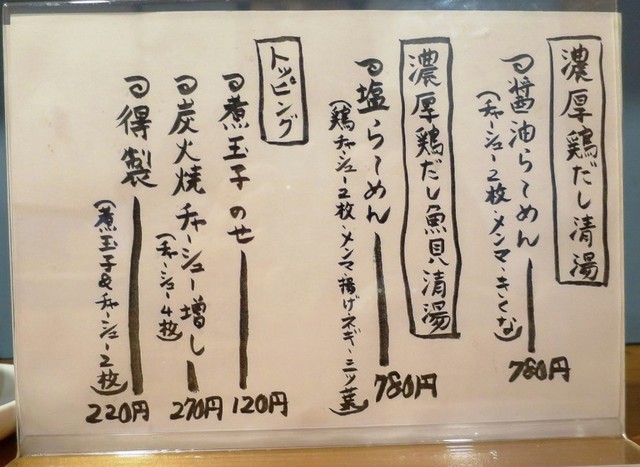 濃厚鶏だし清湯
醤油らーめん 780円
(チャーシュー2枚・メンマ・きくな)
濃厚鶏だし魚貝清湯
塩らーめん 780円
(鶏チャーシュー2枚・メンマ・揚げネギ・三ッ葉)
トッピング
煮玉子のせ 120円
炭火焼チャーシュー増し 270円
(チャーシュー4枚)
得製 220円
(煮玉子&チャーシュー2枚)